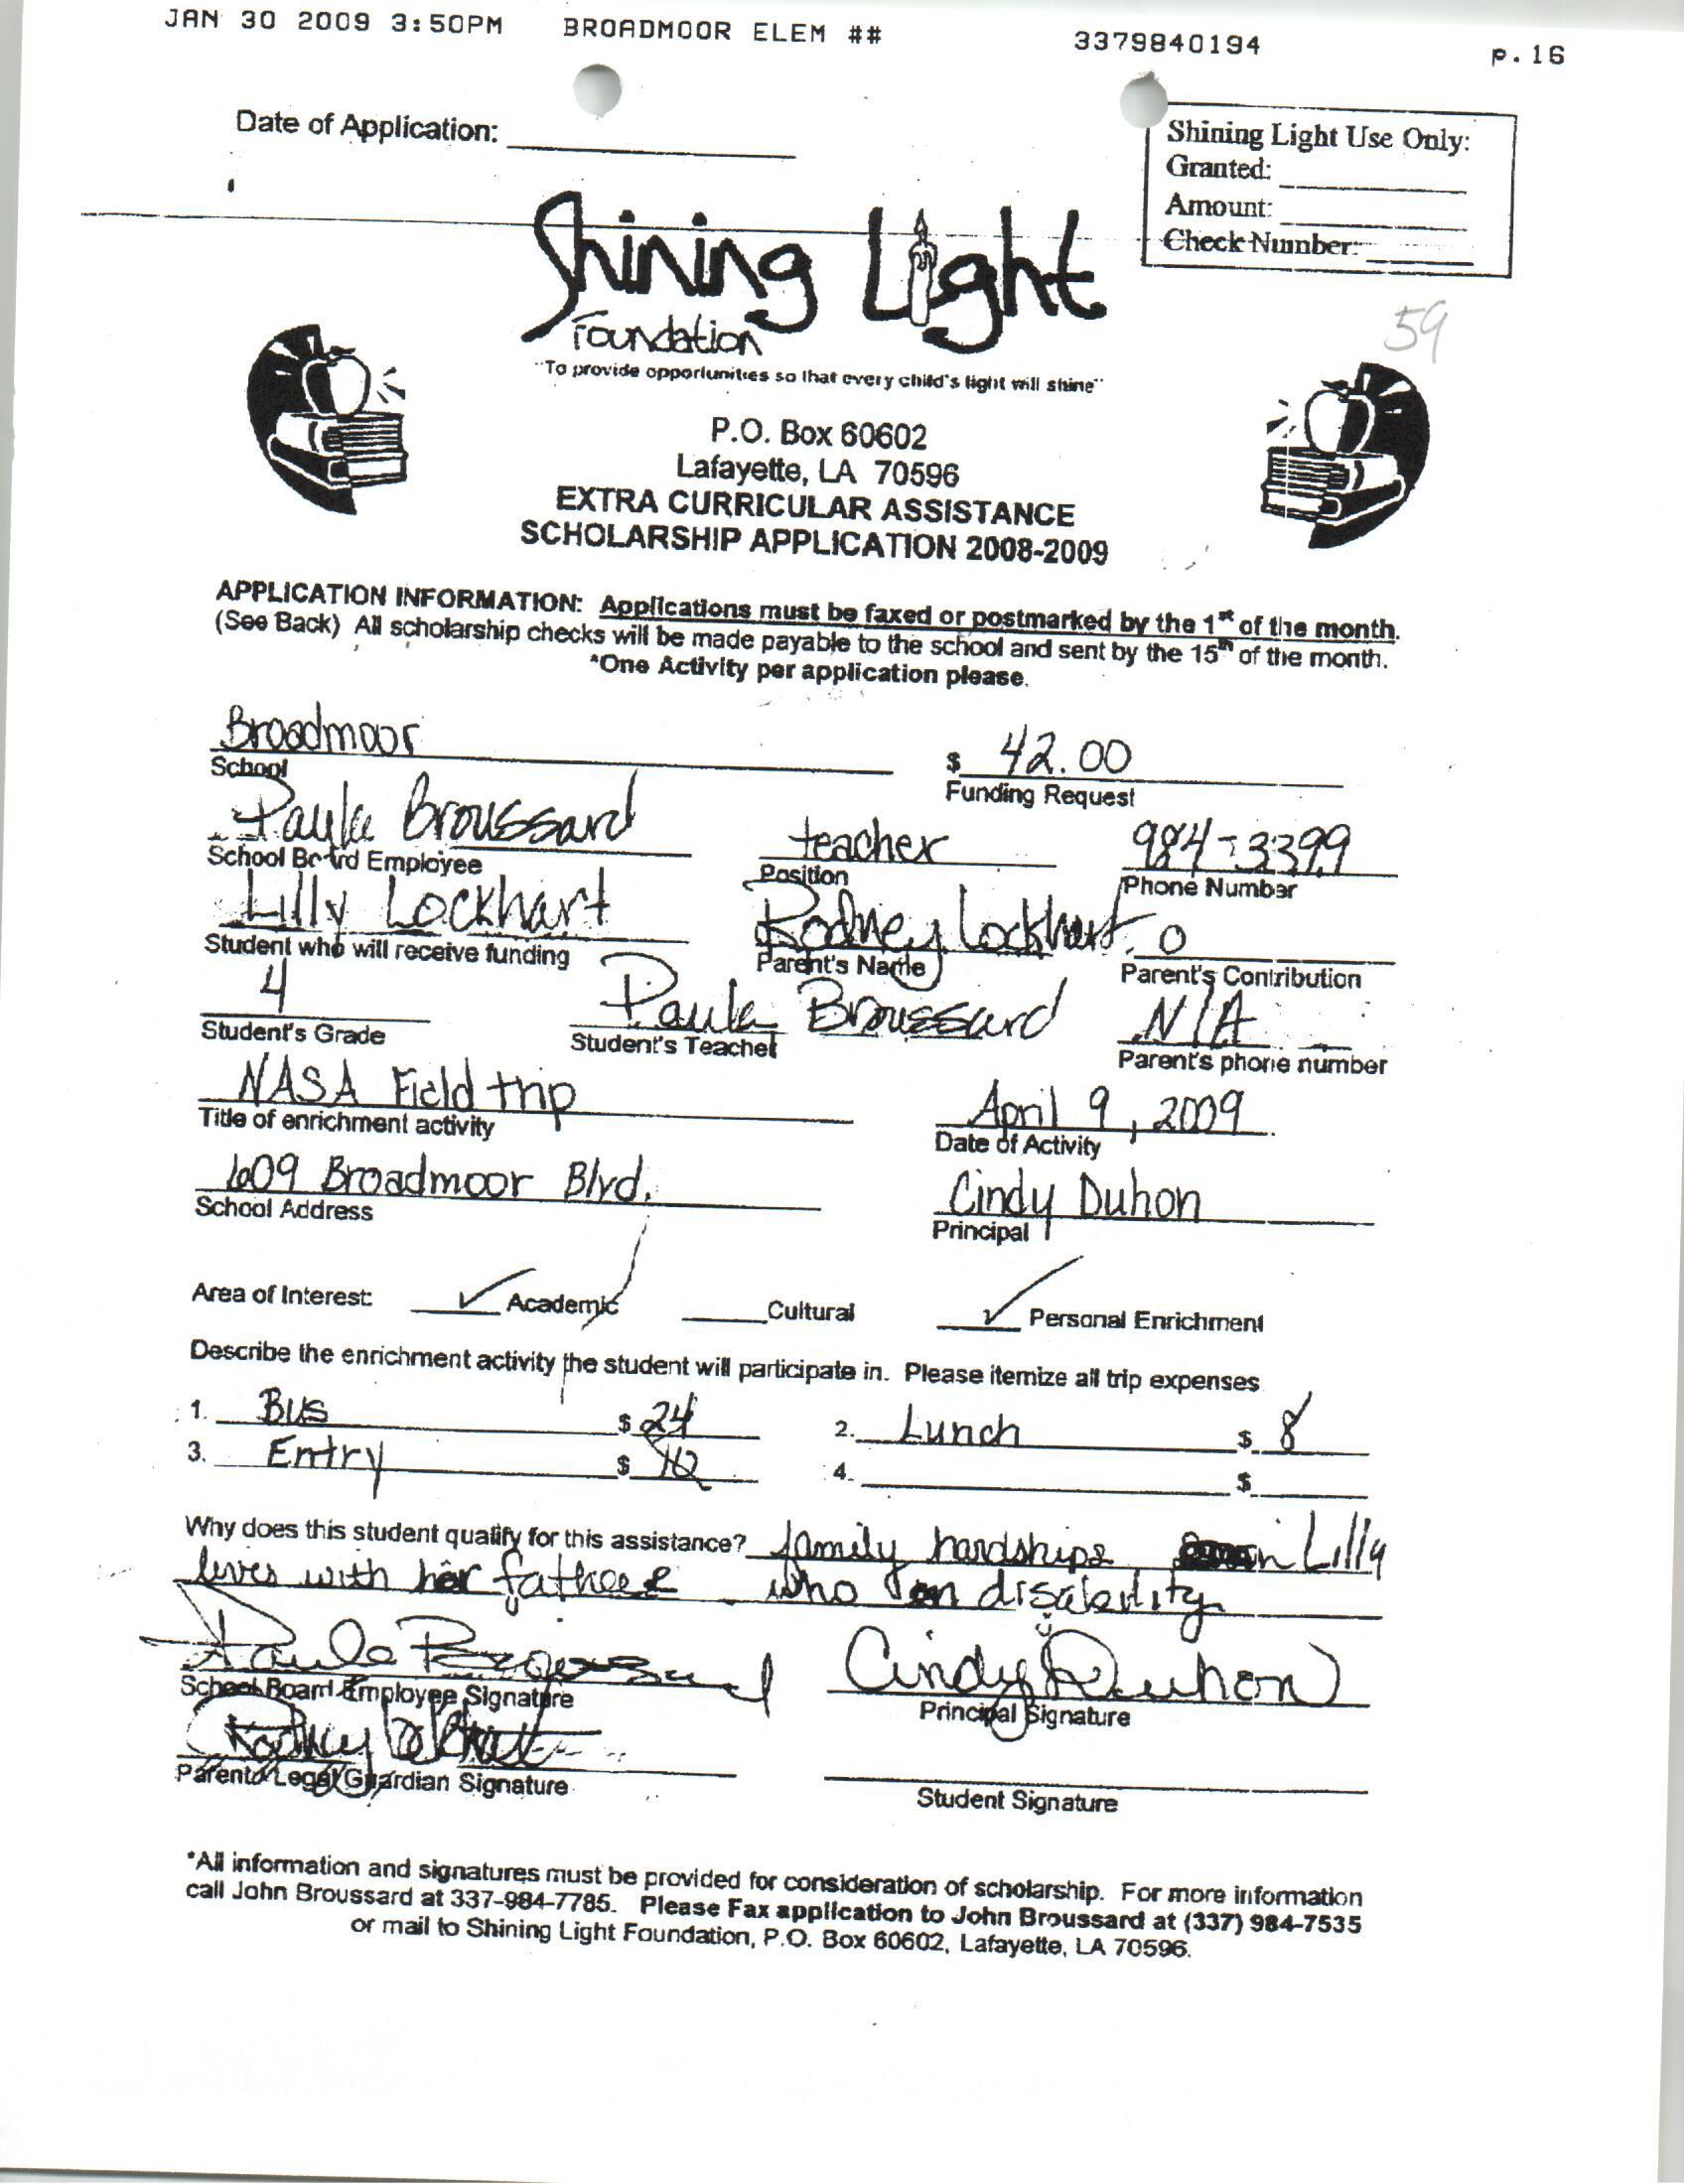 JAN 30 2009 3:50PM BROADMOOR ELEM ## 3379840194 p.16
Date of Application:
Shining Light Use Only:
Granted:
Amount:
Check Number:
Shining Light
Foundation
59
"To provide opportunities so that every child's light will shine"
P.O. Box 60602
Lafayette, LA 70596
EXTRA CURRICULAR ASSISTANCE
SCHOLARSHIP APPLICATION 2008-2009
APPLICATION INFORMATION: Applications must be faxed or postmarked by the 1st of the month.
(See Back) All scholarship checks will be made payable to the school and sent by the 15th of the month.
*One Activity per application please.
Broadmoor $ 42.00
School Funding Request
Paula Broussard teacher 984-3399
School Board Employee Position Phone Number
Lilly Lockhart Rodney Lockhart 0
Student who will receive funding Parent's Name Parent's Contribution
4 Paula Broussard N/A
Student's Grade Student's Teacher Parent's phone number
NASA Field trip April 9, 2009
Title of enrichment activity Date of Activity
609 Broadmoor Blvd. Cindy Duhon
School Address Principal
Area of Interest: ✓ Academic Cultural ✓ Personal Enrichment
Describe the enrichment activity the student will participate in. Please itemize all trip expenses
1. Bus $ 24 2. Lunch $ 8
3. Entry $ 10 4. $
Why does this student qualify for this assistance? family hardships Lilly
lives with her father who on disability
Paula Broussard Cindy Duhon
School Board Employee Signature Principal Signature
Rodney Lockhart
Parent/Legal Guardian Signature Student Signature
*All information and signatures must be provided for consideration of scholarship. For more information
call John Broussard at 337-984-7785. Please Fax application to John Broussard at (337) 984-7535
or mail to Shining Light Foundation, P.O. Box 60602, Lafayette, LA 70596.